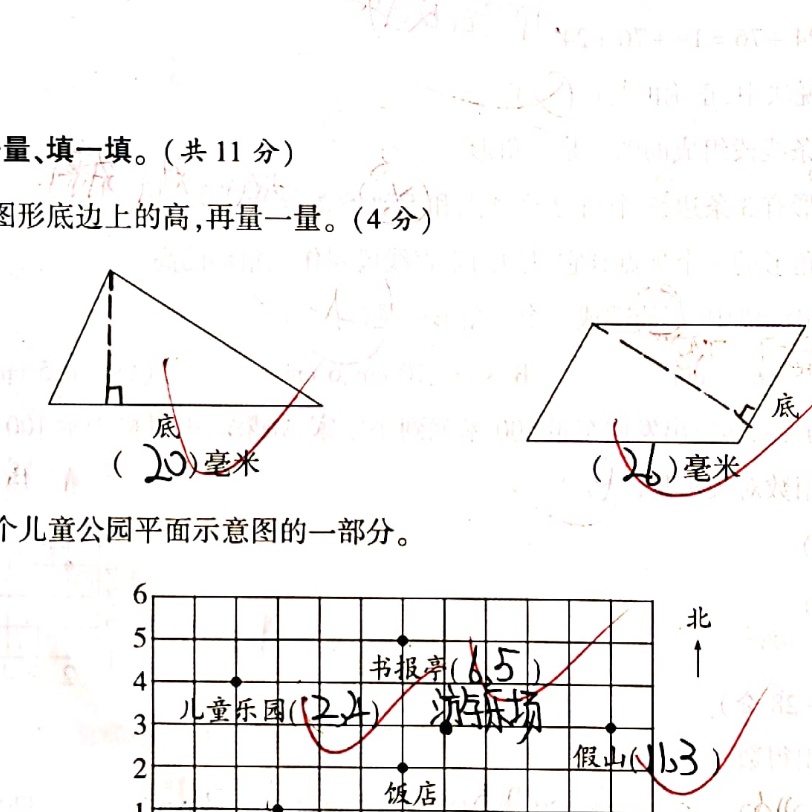 量、填一填。(共 11 分)
图形底边上的高,再量一量。(4 分)
底
底
( 20 )毫米
( 26 )毫米
个儿童公园平面示意图的一部分。
6
北
5
书报亭( 6,5 )
4
儿童乐园( 2,4 )
游乐场
3
假山( 11,3 )
2
饭店
1